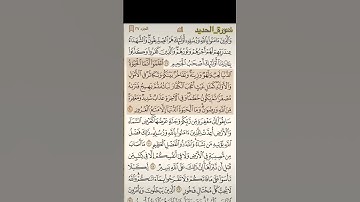 سورة الحديد
الجزء ٢٧
وَالَّذِينَ آمَنُوا بِاللَّهِ وَرُسُلِهِ أُولَٰئِكَ هُمُ الصِّدِّيقُونَ وَالشُّهَدَاءُ
عِندَ رَبِّهِمْ لَهُمْ أَجْرُهُمْ وَنُورُهُمْ وَالَّذِينَ كَفَرُوا وَكَذَّبُوا
بِآيَاتِنَا أُولَٰئِكَ أَصْحَابُ الْجَحِيمِ ١٩ اعْلَمُوا أَنَّمَا الْحَيَاةُ
الدُّنْيَا لَعِبٌ وَلَهْوٌ وَزِينَةٌ وَتَفَاخُرٌ بَيْنَكُمْ وَتَكَاثُرٌ فِي الْأَمْوَالِ
وَالْأَوْلَادِ كَمَثَلِ غَيْثٍ أَعْجَبَ الْكُفَّارَ نَبَاتُهُ ثُمَّ يَهِيجُ فَتَرَاهُ
مُصْفَرًّا ثُمَّ يَكُونُ حُطَامًا وَفِي الْآخِرَةِ عَذَابٌ شَدِيدٌ وَمَغْفِرَةٌ
مِّنَ اللَّهِ وَرِضْوَانٌ وَمَا الْحَيَاةُ الدُّنْيَا إِلَّا مَتَاعُ الْغُرُورِ ٢٠
سَابِقُوا إِلَىٰ مَغْفِرَةٍ مِّن رَّبِّكُمْ وَجَنَّةٍ عَرْضُهَا كَعَرْضِ السَّمَاءِ
وَالْأَرْضِ أُعِدَّتْ لِلَّذِينَ آمَنُوا بِاللَّهِ وَرُسُلِهِ ذَٰلِكَ فَضْلُ
اللَّهِ يُؤْتِيهِ مَن يَشَاءُ وَاللَّهُ ذُو الْفَضْلِ الْعَظِيمِ ٢١ مَا أَصَابَ
مِن مُّصِيبَةٍ فِي الْأَرْضِ وَلَا فِي أَنفُسِكُمْ إِلَّا فِي كِتَابٍ مِّن
قَبْلِ أَن نَّبْرَأَهَا إِنَّ ذَٰلِكَ عَلَى اللَّهِ يَسِيرٌ ٢٢ لِّكَيْلَا
تَأْسَوْا عَلَىٰ مَا فَاتَكُمْ وَلَا تَفْرَحُوا بِمَا آتَاكُمْ وَاللَّهُ
لَا يُحِبُّ كُلَّ مُخْتَالٍ فَخُورٍ ٢٣ الَّذِينَ يَبْخَلُونَ وَيَأْمُرُونَ